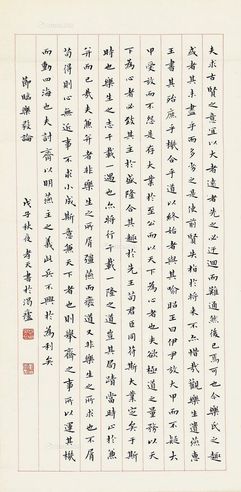 夫求古賢之意宜以大者遠者先之必迂迴而難通然後已焉可也今樂氏之趣
或者其未盡乎而多劣之是使前賢失指於將來不亦惜哉觀樂生遺燕惠
王書其殆庶乎機合乎道以終始者與其喻昭王曰伊尹放大甲而不疑大
甲受放而不怨是存大業於至公而以天下為心者也夫欲極道之量務以天
下為心者必致其主於盛隆合其趣於先王苟君臣同符斯大業定矣于斯
時也樂生之志千載一遇也亦將行千載一隆之道豈其局蹟當時止於兼
并而已哉夫兼并者非樂生之所屑彊燕而廢道又非樂生之所求也不屑
苟得則心無近事不求小成斯意兼天下者也則舉齊之事所以運其機
而動四海也夫討齊以明燕主之義此兵不興於為利矣
節臨樂毅論 戊子秋夜天書於